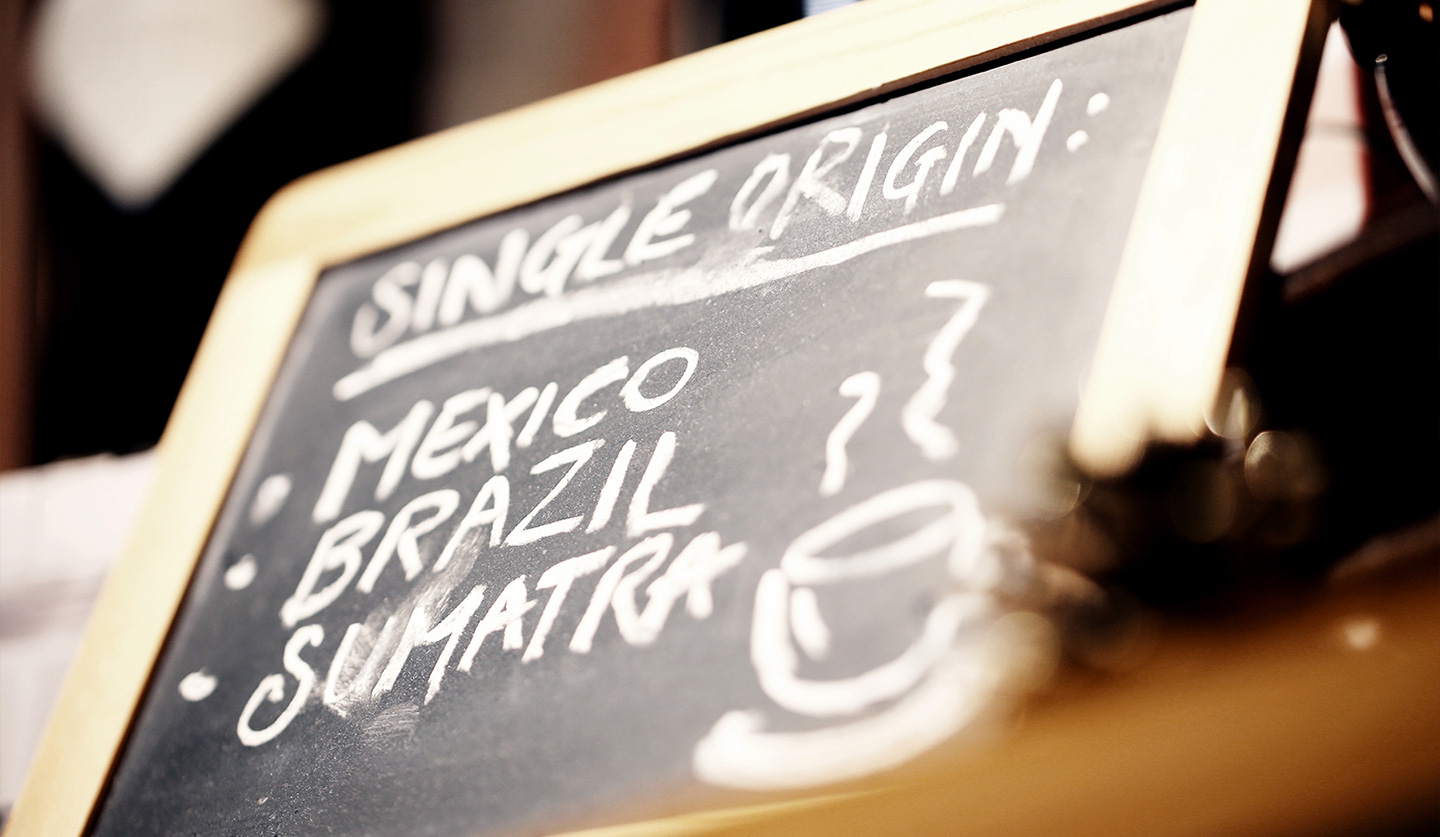 SINGLE ORIGIN:
• MEXICO
• BRAZIL
• SUMATRA